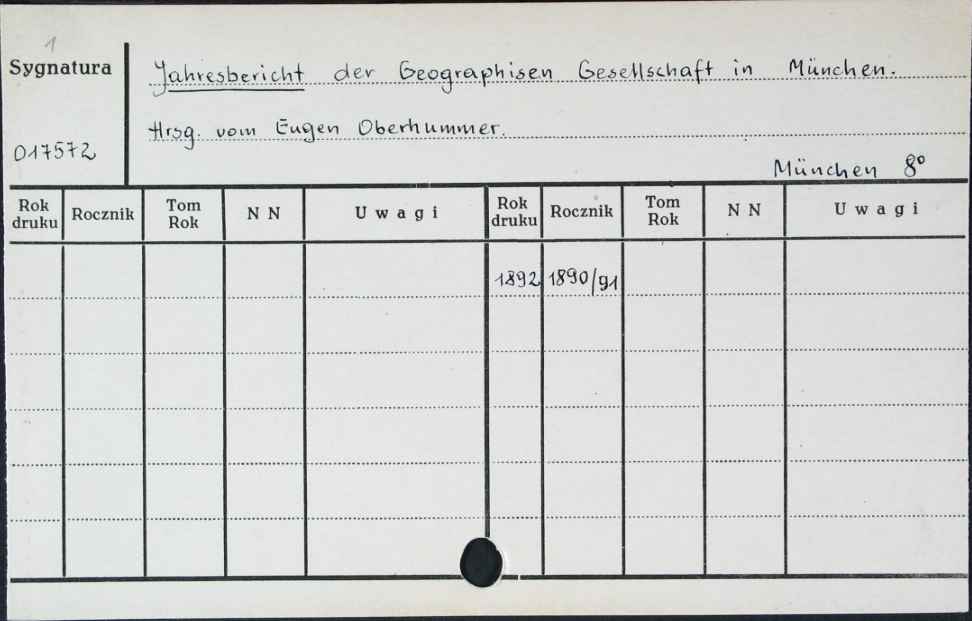 1
Sygnatura
Jahresbericht der Geographisen Gesellschaft in München.
Hrsg. vom Eugen Oberhummer.
017572
München 8º
Rok druku Rocznik Tom Rok N N Uwagi Rok druku Rocznik Tom Rok N N Uwagi
1892 1890/91